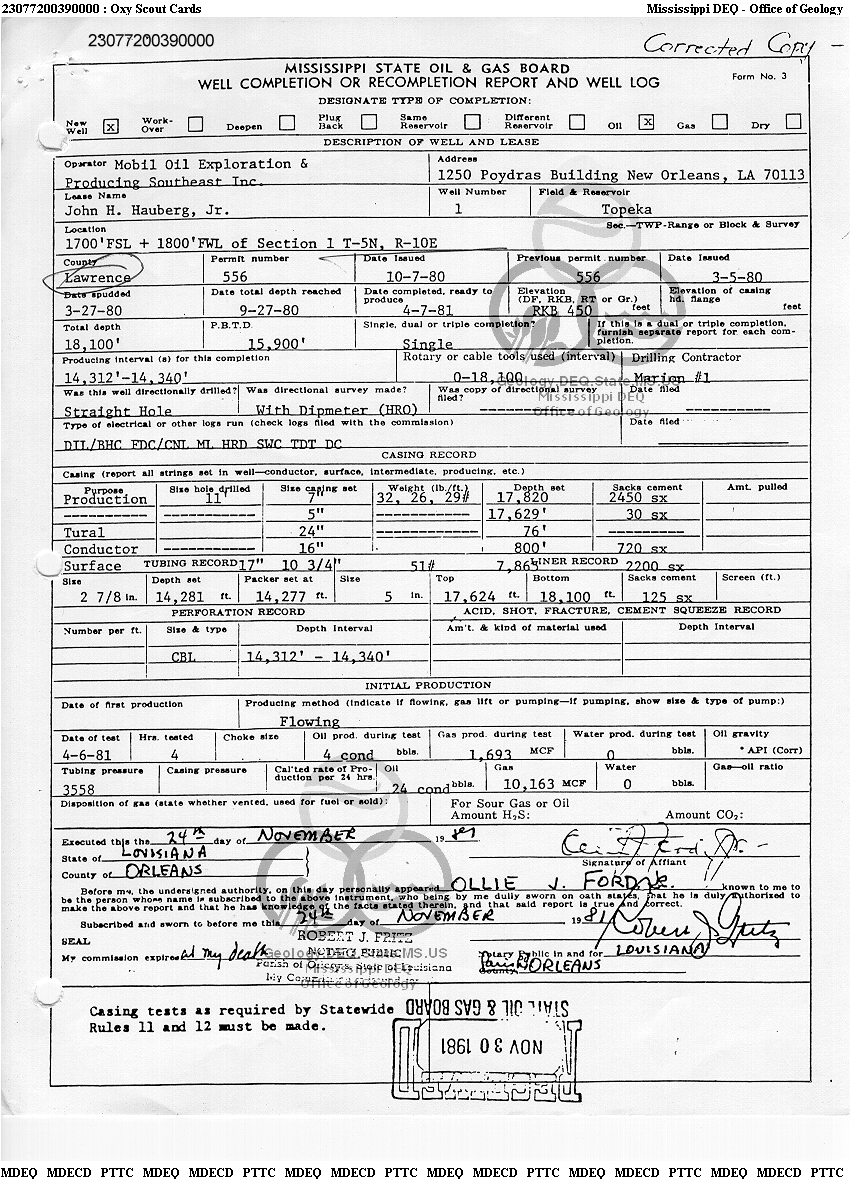 23077200390000 : Oxy Scout Cards Mississippi DEQ - Office of Geology
23077200390000
Corrected Copy -
MISSISSIPPI STATE OIL & GAS BOARD
WELL COMPLETION OR RECOMPLETION REPORT AND WELL LOG Form No. 3
DESIGNATE TYPE OF COMPLETION:
New Well X Work-Over Deepen Plug Back Same Reservoir Different Reservoir Oil X Gas Dry
DESCRIPTION OF WELL AND LEASE
Operator Mobil Oil Exploration & Address
Producing Southeast Inc. 1250 Poydras Building New Orleans, LA 70113
Lease Name Well Number Field & Reservoir
John H. Hauberg, Jr. 1 Topeka
Location Sec.—TWP-Range or Block & Survey
1700'FSL + 1800'FWL of Section 1 T-5N, R-10E
County Permit number Date Issued Previous permit number Date Issued
Lawrence 556 10-7-80 556 3-5-80
Date spudded Date total depth reached Date completed, ready to produce Elevation (DF, RKB, RT or Gr.) Elevation of casing hd. flange
3-27-80 9-27-80 4-7-81 RKB 450 feet feet
Total depth P.B.T.D. Single, dual or triple completion? If this is a dual or triple completion, furnish separate report for each completion.
18,100' 15,900' Single
Producing interval (s) for this completion Rotary or cable tools used (interval) Drilling Contractor
14,312'-14,340' 0-18,100 Marion #1
Was this well directionally drilled? Was directional survey made? Was copy of directional survey filed? Date filed
Straight Hole With Dipmeter (HRO) ------------ ------------
Type of electrical or other logs run (check logs filed with the commission) Date filed
DIL/BHC FDC/CNL ML HRD SWC TDT DC
CASING RECORD
Casing (report all strings set in well—conductor, surface, intermediate, producing, etc.)
Purpose Size hole drilled Size casing set Weight (lb./ft.) Depth set Sacks cement Amt. pulled
Production 11' 7" 32, 26, 29# 17,820 2450 sx
----------- ------------ 5" ------------ 17,629' 30 sx
Tural 24" 76' ----------
Conductor ------------ 16" 800' 720 sx
Surface 17" 10 3/4" 51# 7,865 2200 sx
TUBING RECORD LINER RECORD
Size Depth set Packer set at Size Top Bottom Sacks cement Screen (ft.)
2 7/8 in. 14,281 ft. 14,277 ft. 5 in. 17,624 ft. 18,100 ft. 125 sx
PERFORATION RECORD ACID, SHOT, FRACTURE, CEMENT SQUEEZE RECORD
Number per ft. Size & type Depth Interval Am't. & kind of material used Depth Interval
CBL 14,312' - 14,340'
INITIAL PRODUCTION
Date of first production Producing method (indicate if flowing, gas lift or pumping—if pumping, show size & type of pump:)
Flowing
Date of test Hrs. tested Choke size Oil prod. during test Gas prod. during test Water prod. during test Oil gravity
4-6-81 4 4 cond bbls. 1,693 MCF 0 bbls. ° API (Corr)
Tubing pressure Casing pressure Cal'ted rate of Production per 24 hrs. Oil Gas Water Gas—oil ratio
3558 24 cond bbls. 10,163 MCF 0 bbls.
Disposition of gas (state whether vented, used for fuel or sold): For Sour Gas or Oil
Amount H₂S: Amount CO₂:
Executed this the 24th day of NOVEMBER 1981
State of LOUISIANA
Signature of Affiant
County of ORLEANS
Before me, the undersigned authority, on this day personally appeared OLLIE J. FORD JR. known to me to
be the person whose name is subscribed to the above instrument, who being by me dully sworn on oath states, that he is duly authorized to
make the above report and that he has knowledge of the facts stated therein, and that said report is true and correct.
Subscribed and sworn to before me this 24th day of NOVEMBER 1981
Robert J. Fritz
SEAL ROBERT J. FRITZ
NOTARY PUBLIC
My commission expires at my death Notary Public in and for LOUISIANA
Parish of Orleans, State of Louisiana County ORLEANS
Geology.DEQ.State.MS.US
Mississippi DEQ
Office of Geology
Casing tests as required by Statewide
Rules 11 and 12 must be made.
STATE OIL & GAS BOARD
NOV 30 1981
MDEQ MDECD PTTC MDEQ MDECD PTTC MDEQ MDECD PTTC MDEQ MDECD PTTC MDEQ MDECD PTTC MDEQ MDECD PTTC